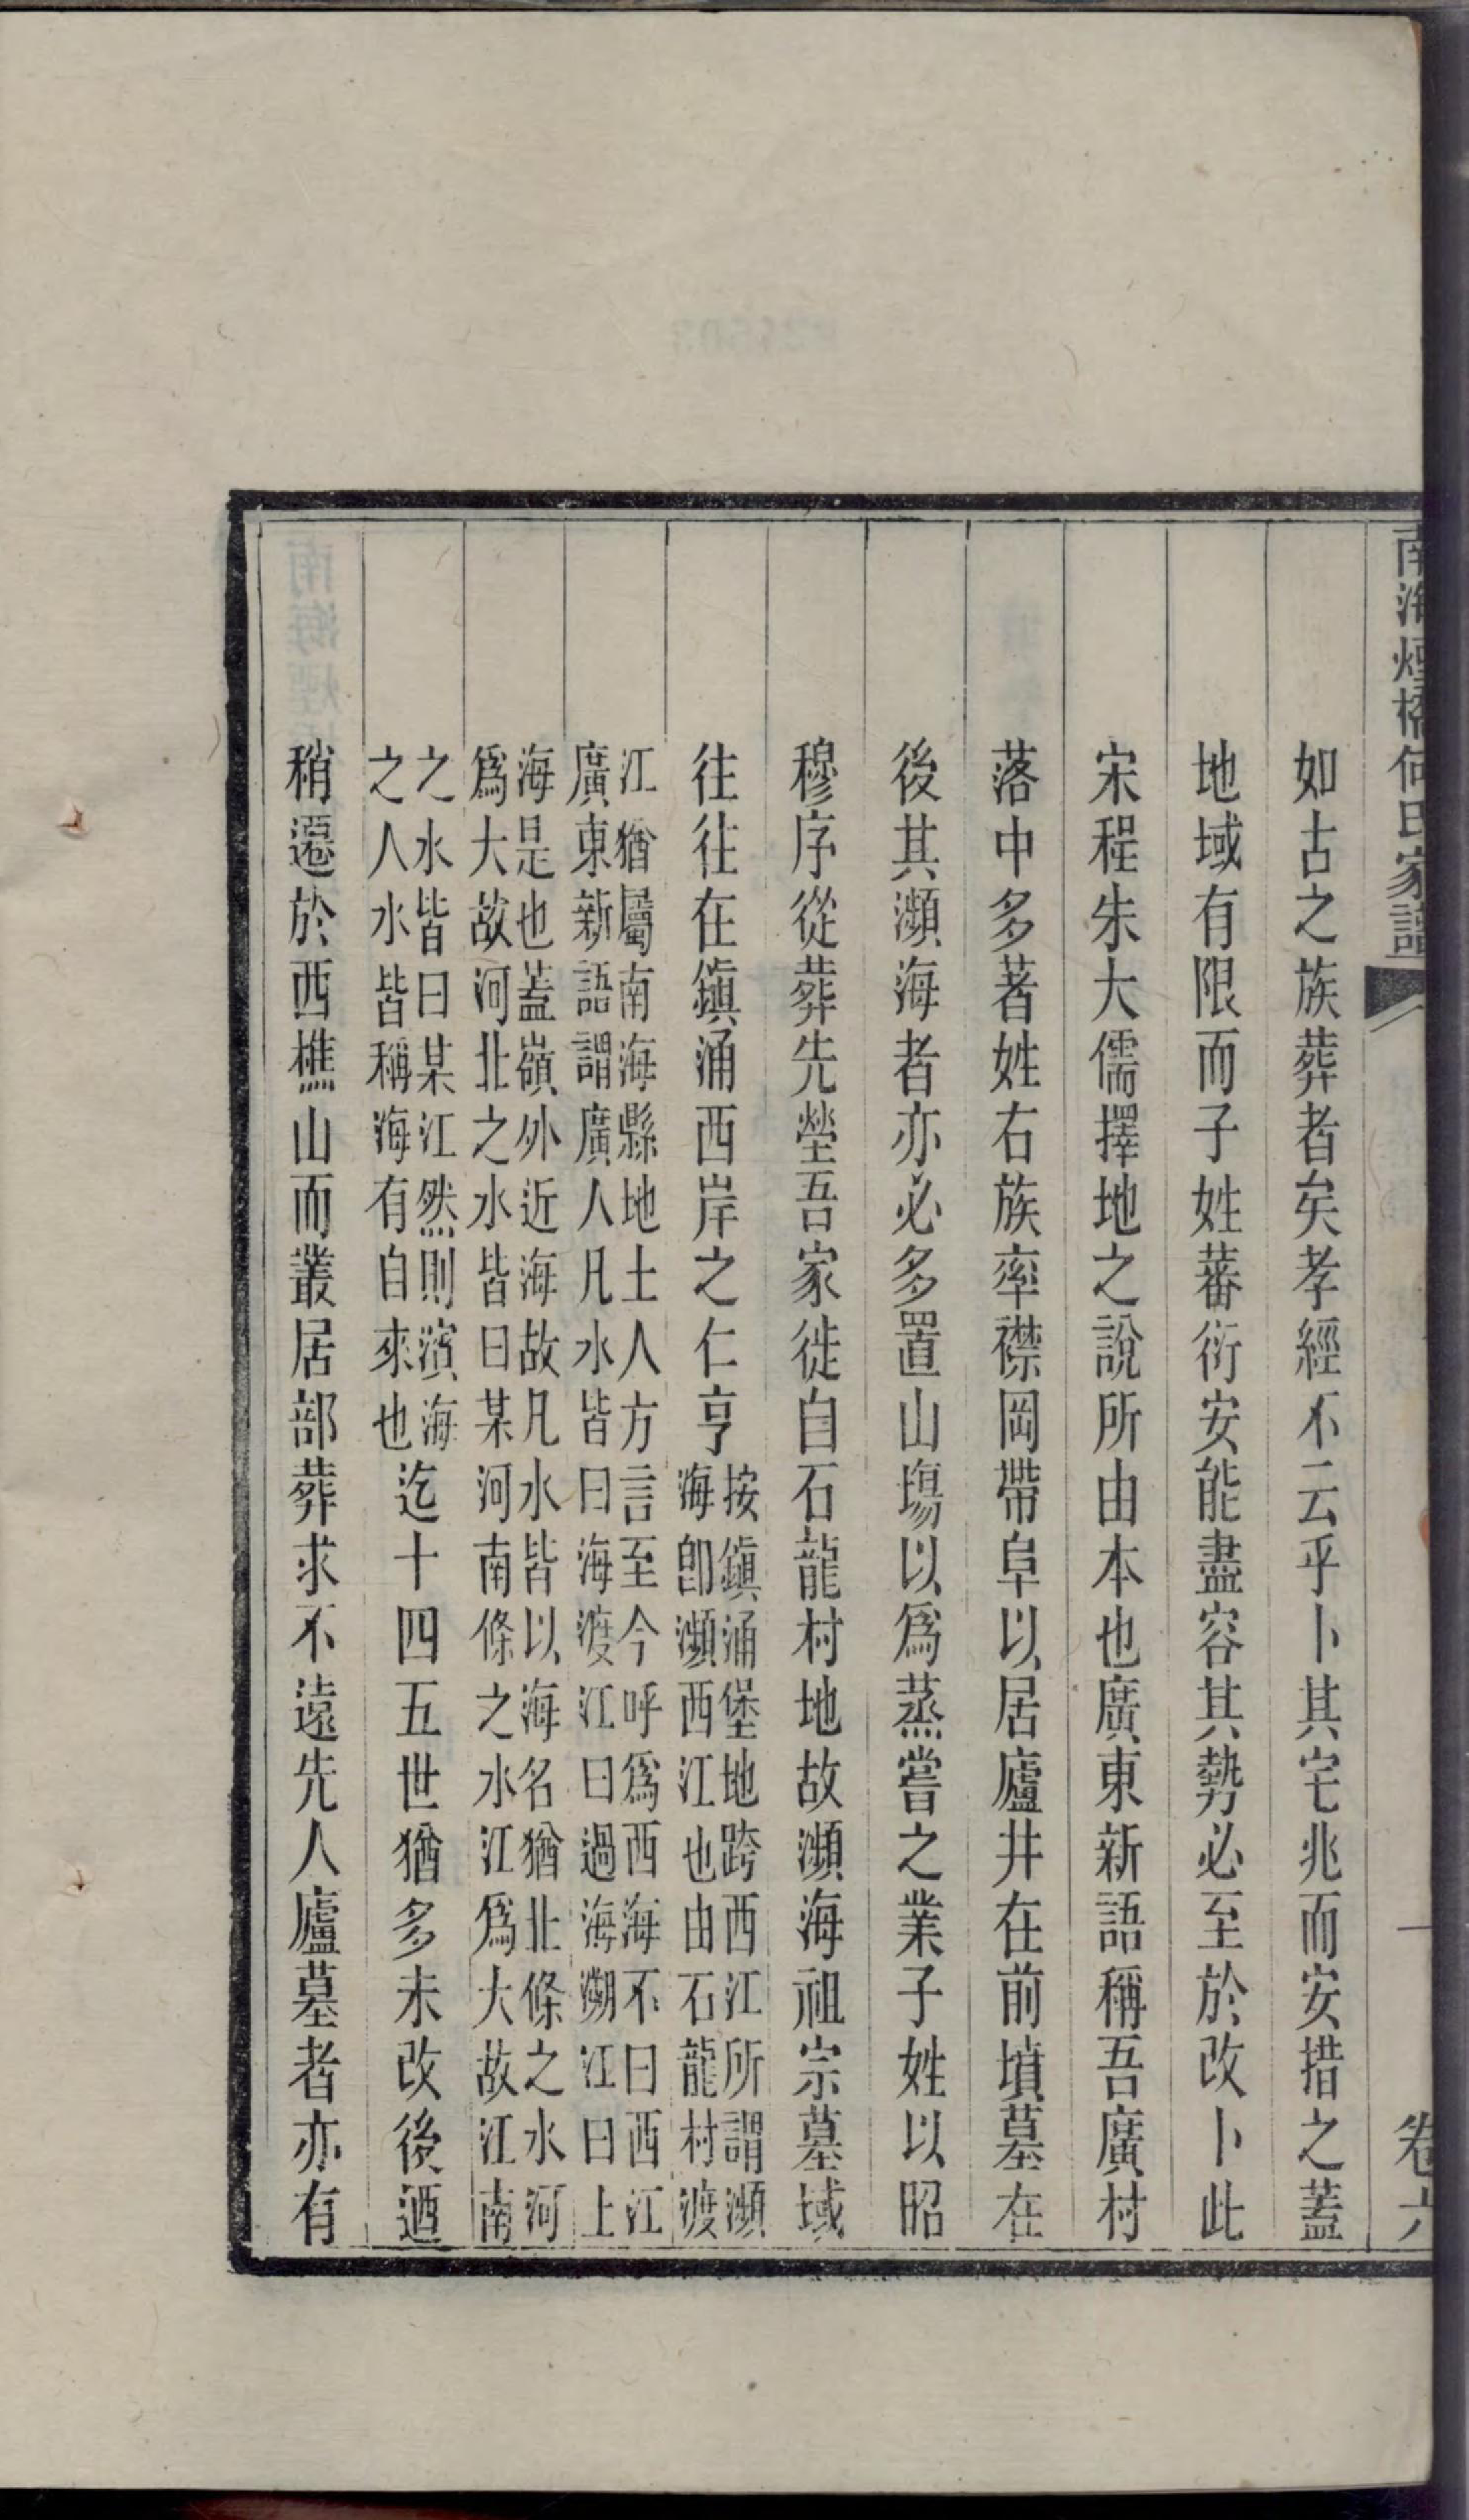 南海煙橋何氏家譜 卷六
如古之族葬者矣孝經不云乎卜其宅兆而安措之蓋
地域有限而子姓蕃衍安能盡容其勢必至於改卜此
宋程朱大儒擇地之說所由本也廣東新語稱吾廣村
落中多著姓右族率襟岡帶阜以居廬井在前墳墓在
後其瀕海者亦必多置山塲以爲蒸嘗之業子姓以昭
穆序從葬先塋吾家徙自石龍村地故瀕海祖宗墓域
往往在鎭涌西岸之仁亨
按鎭涌堡地跨西江所謂瀕
海卽瀕西江也由石龍村渡
江猶屬南海縣地土人方言至今呼爲西海不曰西江
廣東新語謂廣人凡水皆曰海渡江曰過海溯江曰上
海是也蓋嶺外近海故凡水皆以海名猶北條之水河
爲大故河北之水皆曰某河南條之水江爲大故江南
之水皆曰某江然則濱海
之人水皆稱海有自來也
迄十四五世猶多未改後迺
稍遷於西樵山而叢居部葬求不遠先人廬墓者亦有